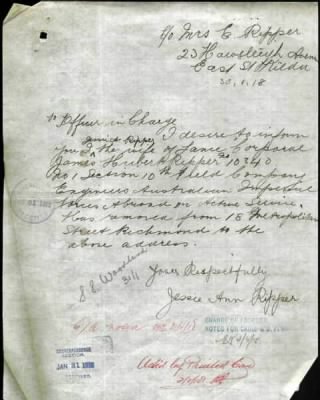 c/o Mrs C Ripper
23 Hawsleigh Avenue
East St Kilda
30.1.18
to Officer in Charge
Jessie A Ripper
I desire to inform
you the wife of Lance Corporal
James Hubert Ripper 10240
No 1 Section 10th Field Company
Engineers Australian Imperial
Forces Abroad on Active Service
Has removed from 18 Metropolitan
Street Richmond to the
above address.
Yours Respectfully
Jessie Ann Ripper
31/1
CHANGE OF ADDRESS
NOTED FOR
JAN 31 1918